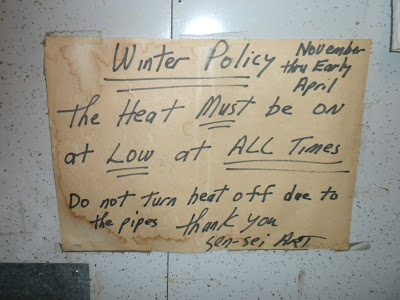 Winter Policy
November
thru Early
April
the Heat Must be on
at Low at ALL Times
Do not turn heat off due to
the pipes thank you
Sen-sei ART